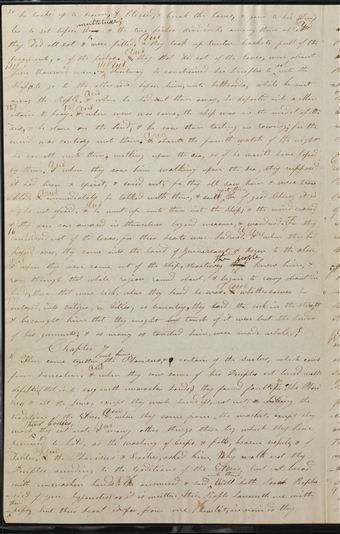 he looked up to heaven & blessed, & break the loaves, & gave to his
to set before the multitude; & the two fishes divided he among them all. & they
they did all eat & were filled. & they took up twelve baskets full of the
fragments, & of the fishes. & they that did eat of the loaves, was about
five thousand men. & straitway he constrained his Disciples to get into the
ship, to go to the other side before him, unto bethsaida, while he sent
away the people, & when he had sent them away, he departed into a
mountain to pray. & when even was come, the ship was in the midst of the
sea, & he alone on the land, & he saw them toiling in rowing; for the
wind was contrary unto them, & about the fourth watch of the night
he cometh unto them, walking upon the sea, as if he would have passed
by them, & when they saw him walking upon the sea, they supposed
it had been a spirit, & cried out; for they all saw him & were
& immediately he talked with them, & saith, be of good cheer, it is
I; be not afraid. & he went up unto them into the ship; & the wind ceased
& they were sore amazed in themselves beyond measure, & wondered. for they
considered not of the loaves; for their hearts were hardened. & when they had
passed over, they came into the land of Genessaret, & drew to the shore
& when they were come out of the ship, straitway the people knew him, &
ran through that whole region round about, & began to carry about in
beds, those that were sick, where they heard he was. & whithersoever he
entered, into villages, or cities, or country, they laid the sick in the streets
& besought him that they might touch if it was but the border
of his garment; & as many as touched him, were made whole.
Chapter 7
Then came together unto him the Pharisees, & certain of the Scribes, which came
from Jerusalem. & when they saw some of his Disciples eat bread with
defiled (that is to say with unwashen hands) they found fault. for the Phari
sees, & all the Jews, except they wash hands oft, eat not, holding the
tradition of the Elders. & when they come from the market, except they
wash their bodies, they eat not. & many other things there be, which they have
received to hold, as the washing of Cups, & pots, brazen vessels, & of
tables. & the Pharisees & Scribes, asked him, Why walk not thy
Disciples according to the traditions of the Elders, but eat bread
with unwashen hands. he answered & said, Well hath Prophe
sied of you hypocrites; as it is written, this People honoureth me with
lips, but their heart is far from me. in vain do they